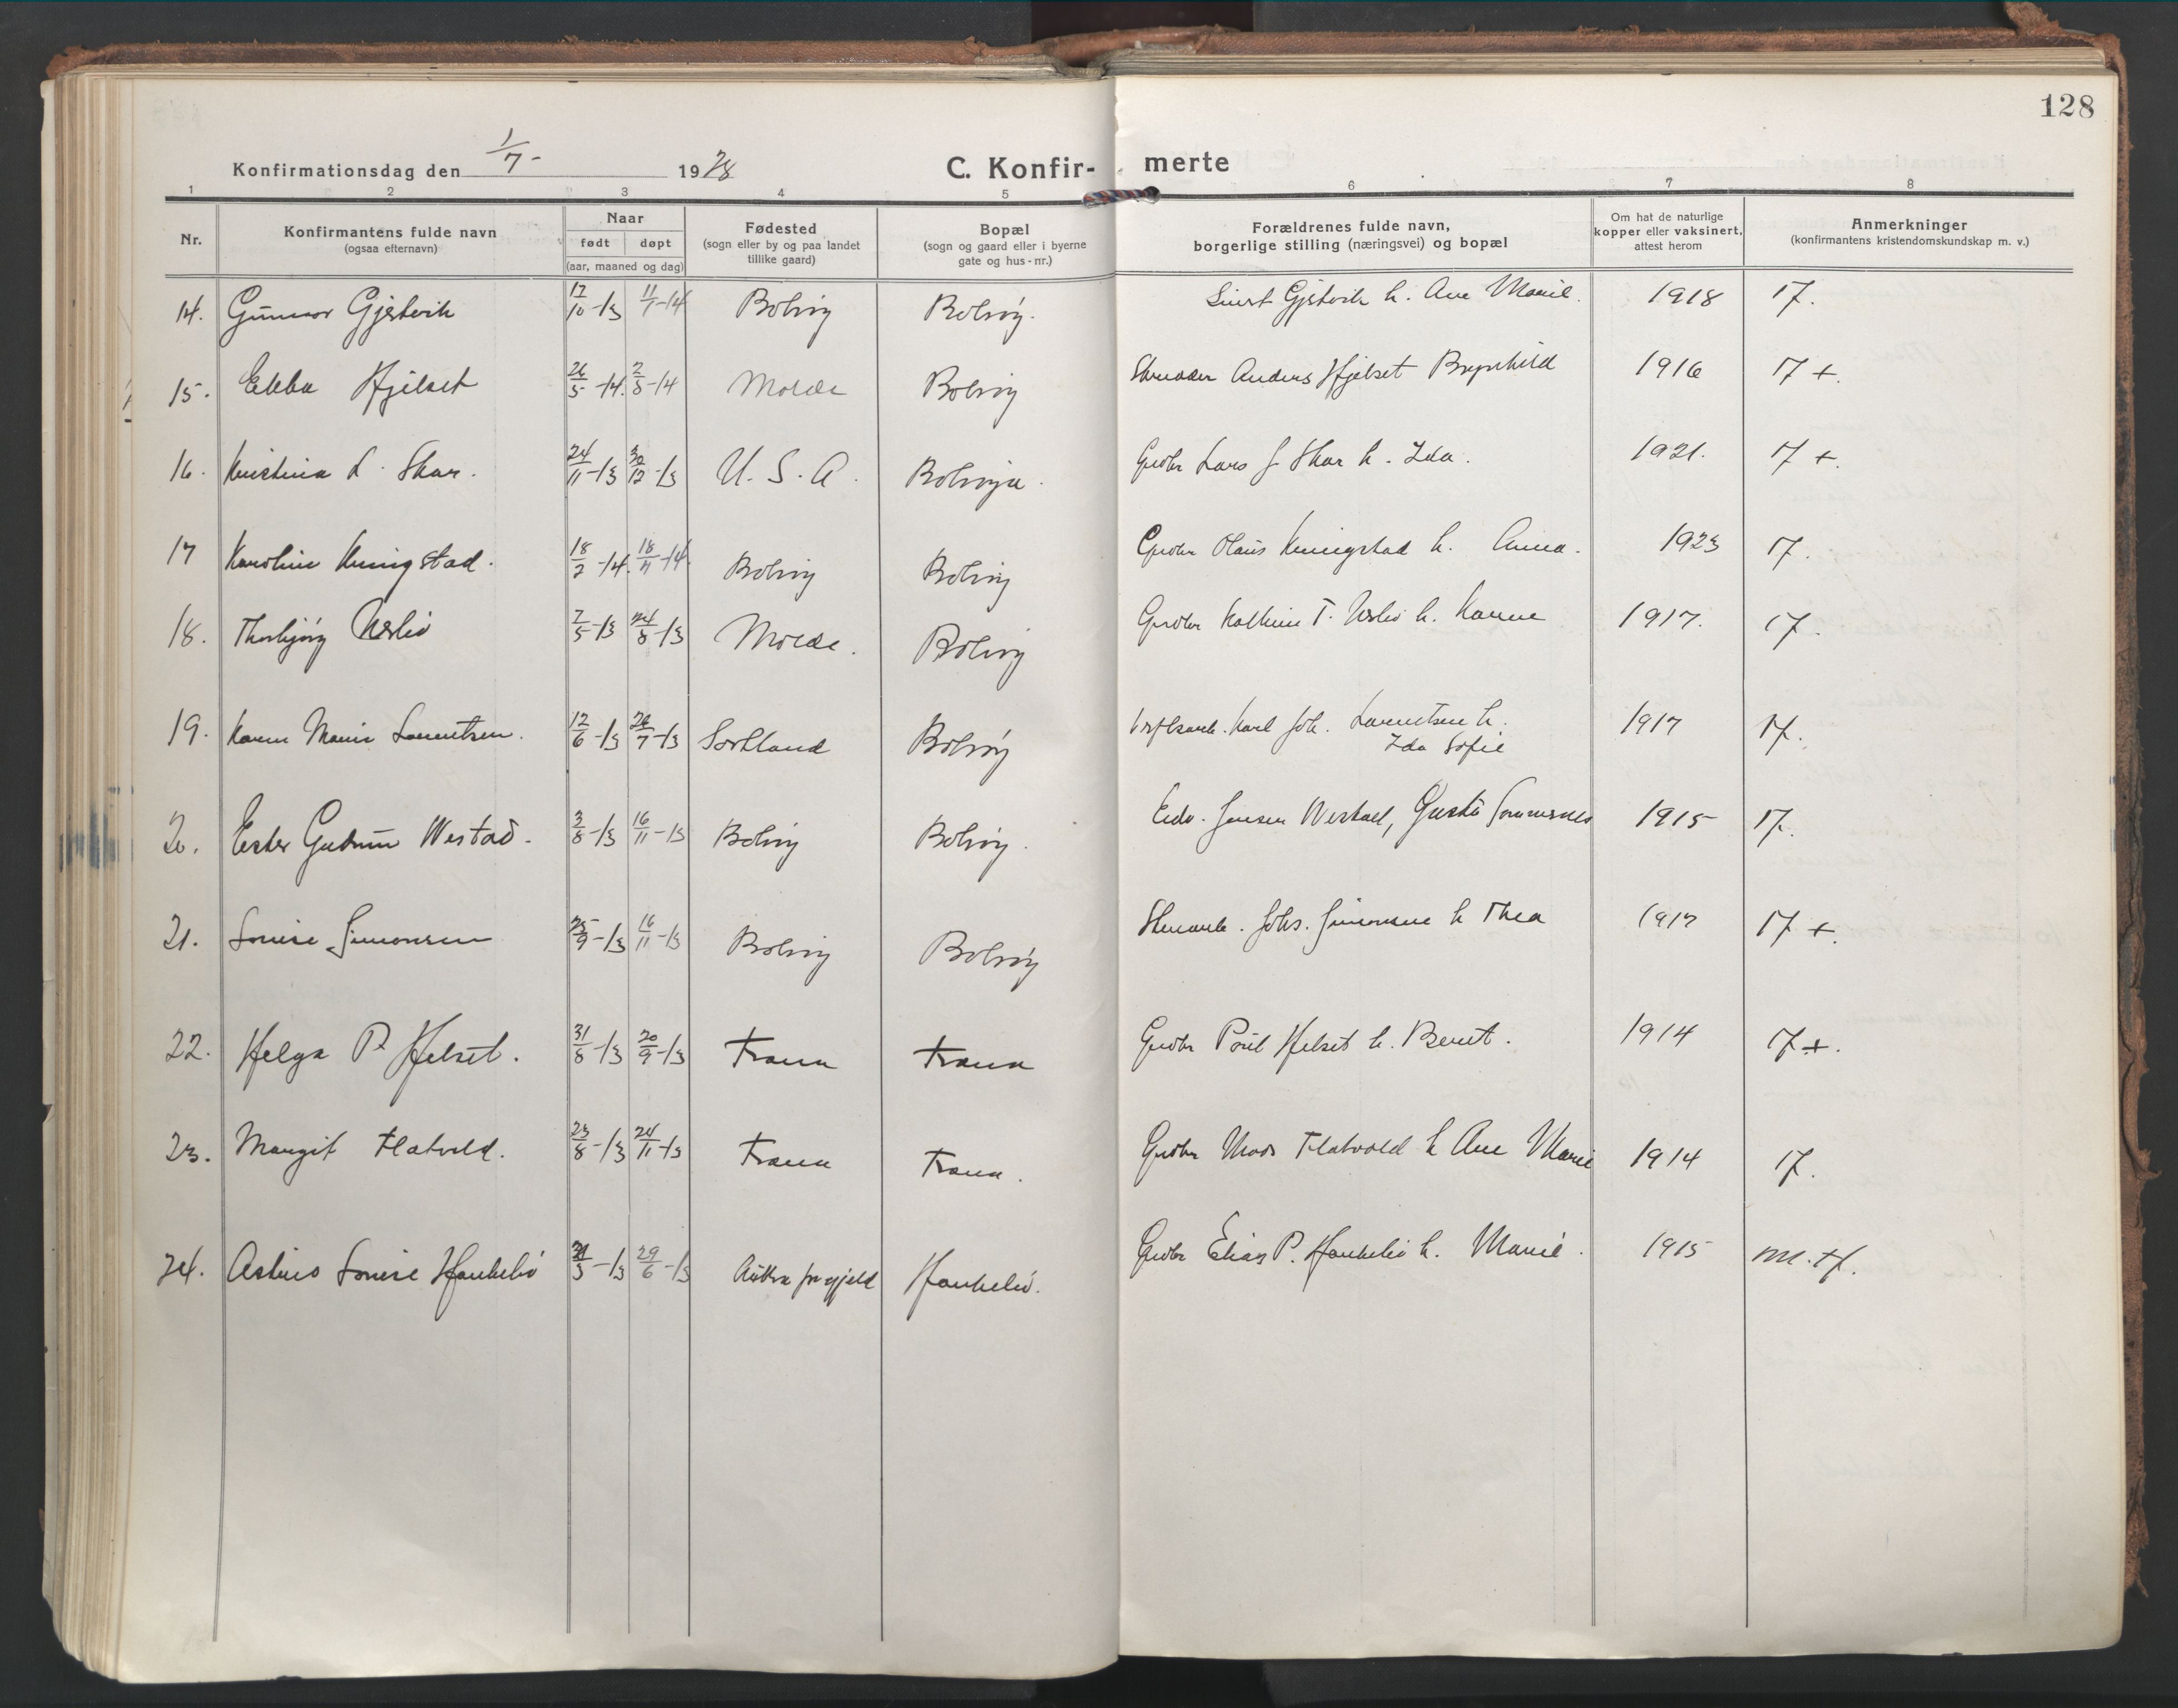 128
Konfirmationsdag den 1/7- 1928
C. Konfir- merte
1 2 3 4 5 6 7 8
Nr.
Konfirmantens fulde navn
(ogsaa efternavn)
Naar
født døpt
(aar, maaned og dag)
Fødested
(sogn eller by og paa landet
tillike gaard)
Bopæl
(sogn og gaard eller i byerne
gate og hus-nr.)
Forældrenes fulde navn,
borgerlige stilling (næringsvei) og bopæl
Om hat de naturlige
kopper eller vaksinert,
attest herom
Anmerkninger
(konfirmantens kristendomskundskap m. v.)
14. Gunnar Gjestvik 17/10-13 11/1-14 Bolsøy Bolsøy. Sivert Gjestvik h. Ane Marie. 1918 17.
15. Ebba Hjelset 26/5-14. 2/8-14 Molde Bolsøy Anders Hjelset Brynhild 1916 17 +.
16. Kristina L. Skar. 24/11-13 30/12-13 U. S. A. Bolsøya. Grdbr Lars J. Skar h. Ida. 1921. 17 +.
17 Karoline Kringstad. 18/2-14. 18/4-14. Bolsøy Bolsøy Grdbr Olaus Kringstad h. Anna. 1923 17.
18. Thorbjørg 7/5-13 24/8-13 Molde. Bolsøy Grdbr T. h. Karen 1917. 17.
19. Karen Marie Lauritsen. 12/6-13 26/7-13 Sortland Bolsøy Karl Joh. Lauritsen h. 1917 17.
Ida Sofie
20. Ester Gudrun Westad. 3/8-13 16/11-13 Bolsøy Bolsøy. Edv. Jensen Westad, 1915 17.
21. Louise Simonsen 25/9-13 16/11-13 Bolsøy Bolsøy Johs. Simonsen h Thea 1917 17 +.
22. Helga P. Helset. 31/8-13 20/9-13 Fræna Fræna Grdbr Poul Helset h. Beret. 1914 17 +.
23. Margit Flatvold. 23/8-13 24/11-13 Fræna Fræna. Grdbr Mads Flatvold h Ane Marie 1914 17.
24. Louise 31/3-13 29/6-13 Aukra Grdbr Elias P. h. Marie. 1915